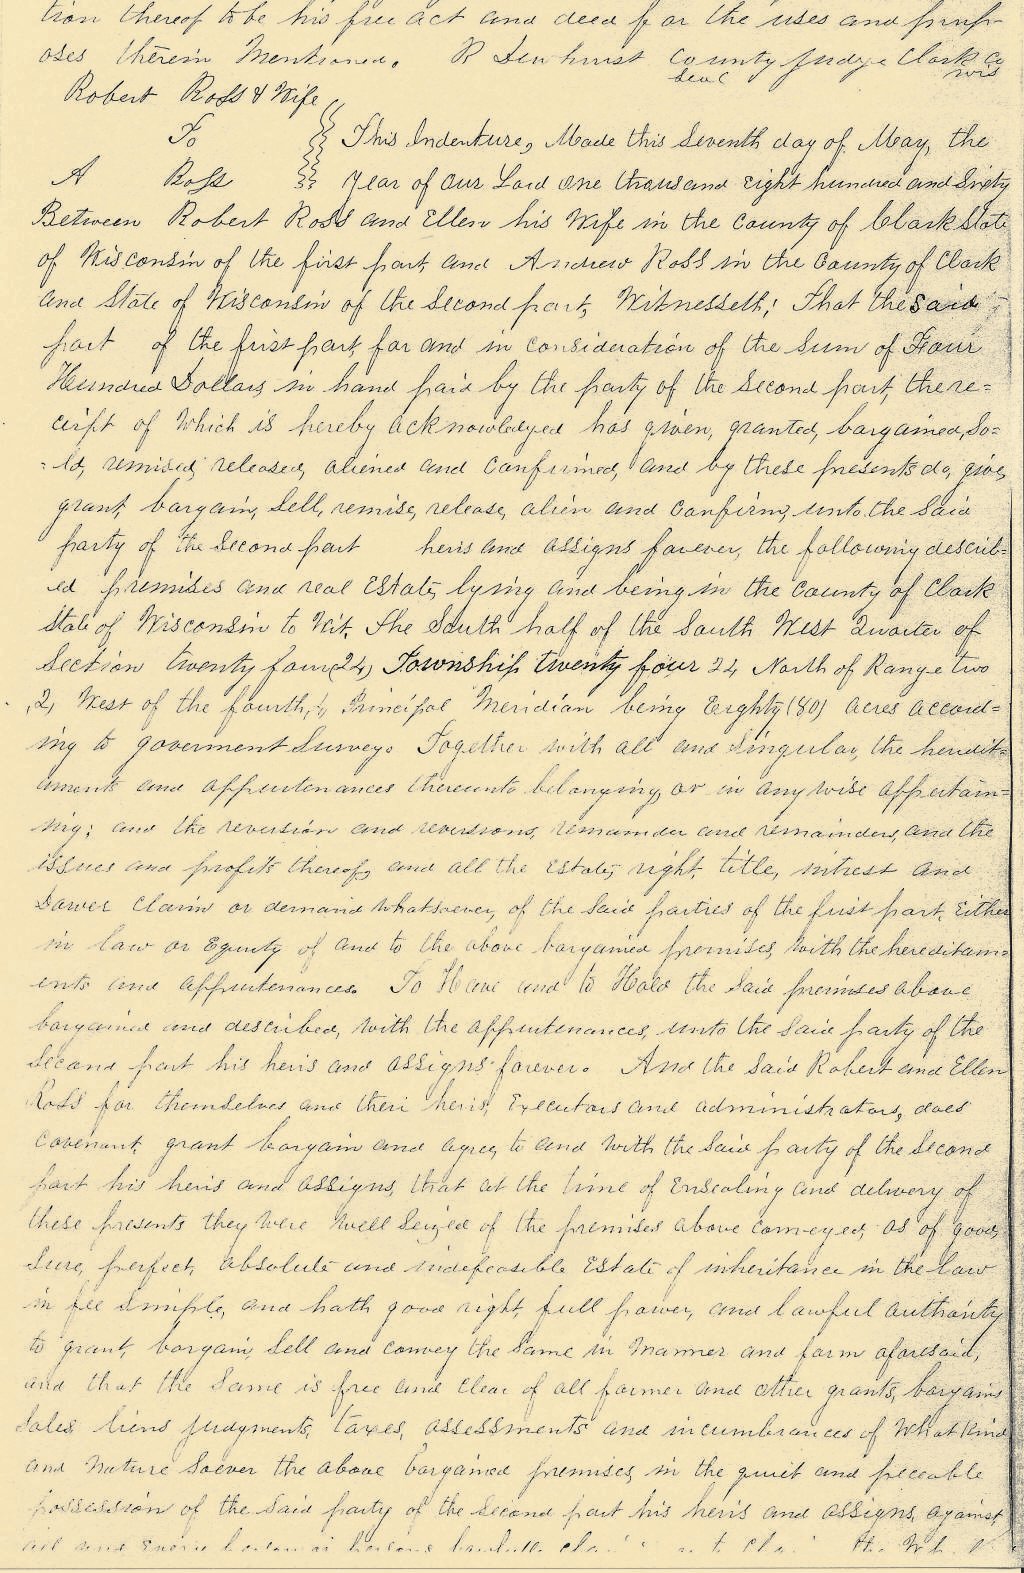 tion thereof to be his free act and deed for the uses and purp-
oses therein Mentioned. R Dewhurst County Judge Clark Co
Seal Wis
Robert Ross & Wife
To This Indenture, Made this Seventh day of May, the
A Ross Year of our Lord One thousand Eight hundred and Sixty
Between Robert Ross and Ellen his Wife in the County of Clark State
of Wisconsin of the first part, and Andrew Ross in the County of Clark
and State of Wisconsin of the Second part, Witnesseth; That the said
part of the first part, for and in consideration of the Sum of Four
Hundred Dollars, in hand paid by the party of the Second part, there=
ceipt of Which is hereby acknowledged has given, granted, bargained, So=
=ld, remised, released, aliened and Confirmed, and by these presents do, give,
grant, bargain, Sell, remise, release, alien and Confirm, unto the Said
party of the Second part heris and assigns forever, the following describ=
ed premises and real Estate, lying and being in the County of Clark
State of Wisconsin to Wit, The South half of the South West Quarter of
Section twenty four (24) Township twenty four 24 North of Range two
,2, West of the fourth, Principal Meridian being Eighty (80) Acres accord=
ing to goverment Survey. Together with all and Singular, the heredit=
aments and appurtenances thereunto belonging, or in any wise appertain=
ing; and the reversion and reversions, remainder and remainders, and the
issues and profits thereof, and all the Estate, right, title, intrest and
Dower Claim or demand whatsoever, of the Said parties of the first part, Either
in law or Equity of and to the above bargained premises, With the hereditam=
ents and appurtenances. To Have and to Hold the Said premises above
bargained and described, With the appurtenances, unto the Said party of the
Second part his heris and assigns forever. And the Said Robert and Ellen
Ross for themselves and their heris, Executors and administrators, does
Covenant, grant bargain and agree, to and With the Said party of the Second
part his heris and assigns, that at the time of Ensealing and delivery of
these presents they Were Well Seized of the premises above Conveyed, as of good,
Sure, perfect, absolute and indefeasible Estate of inheritance in the law
in fee Simple, and hath good right, full power, and lawful authority
to grant, bargain, Sell and convey the Same in Manner and form aforesaid,
and that the Same is free and Clear of all former and other grants, bargains
Sales, liens judgments, taxes, assessments and incumbrances of What Kind
and Nature Soever the above bargained premises, in the quiet and peceable
possession of the Said party of the Second part his heris and assigns, against
all and Every